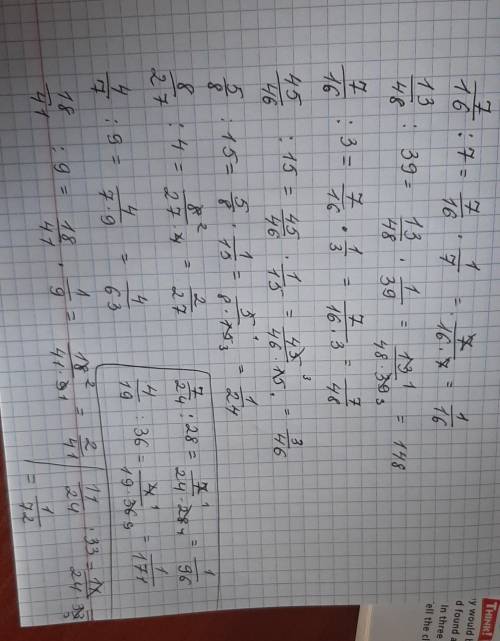 7/16 : 7 = 7/16 · 1/7 = 7/16·7 = 1/16
13/48 : 39 = 13/48 · 1/39 = 13 1/48·39 3 = 148
7/16 : 3 = 7/16 · 1/3 = 7/16·3 = 7/48
45/46 : 15 = 45/46 · 1/15 = 45 3/46·15 1 = 3/46
5/8 : 15 = 5/8 · 1/15 = 5 1/8·15 3 = 1/24
8/27 : 4 = 8 2/27·4 = 2/27
4/7 : 9 = 4/7·9 = 4/63
18/41 : 9 = 18/41 · 1/9 = 18 2/41·9 1 = 2/41
7/24 : 28 = 7 1/24·28 4 = 1/96
4/19 : 36 = 4 1/19·36 9 = 1/171
11/24 : 33 = 11/24·33 3
= 1/72
THINK
y would
d found a
In three
ell the c